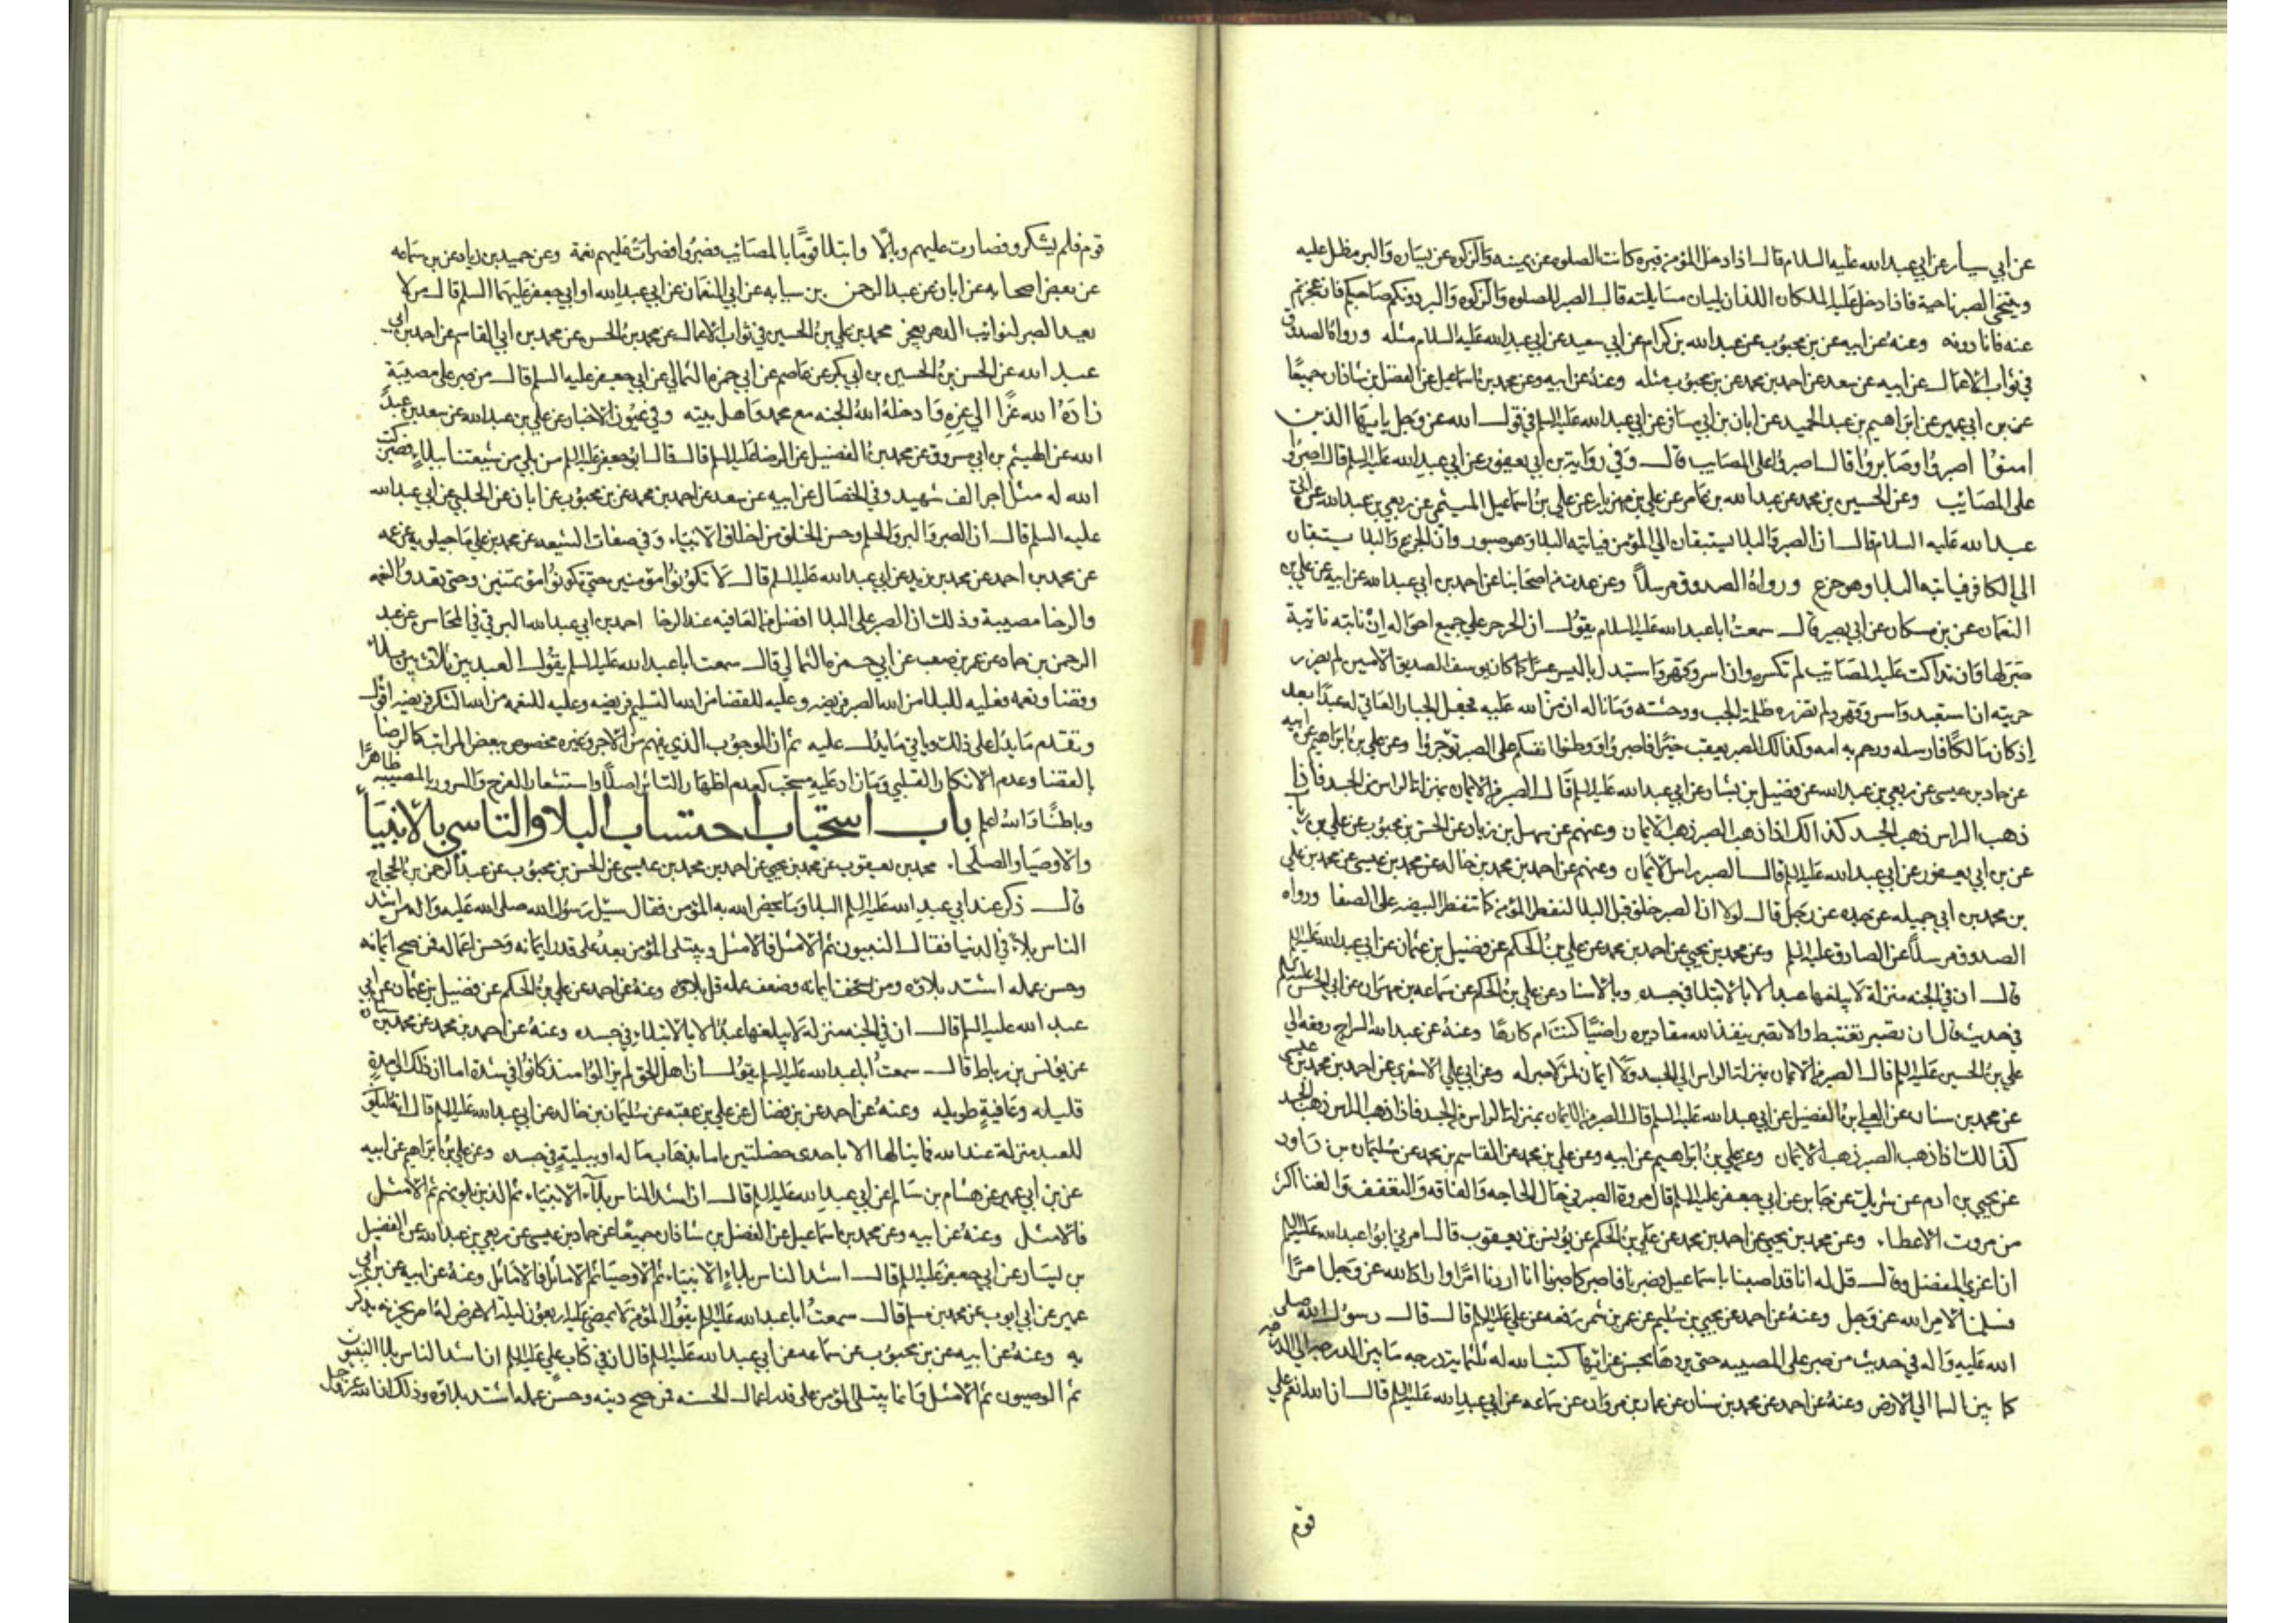 عن ابي سيار عن ابي عبد الله عليه السلام قال اذا دخل المؤمن قبره كانت الصلوه عن يمينه والزكوه عن يساره والبر مظل عليه
ويتنحى الصبر ناحية فاذا دخل عليه الملكان اللذان يليان مسايلته قال الصبر للصلوه والزكوه والبر دونكم صاحبكم فان عجزتم
عنه فانا دونه وعنه عن ابيه عن بن محبوب عن عبد الله بن كرام عن ابي سعيد عن ابي عبد الله عليه السلام مثله ورواه الصدوق
في ثواب الاعمال عن ابيه عن سعد عن احمد بن محمد عن بن محبوب مثله وعنه عن ابيه وعن محمد بن اسماعيل عن الفضل بن شاذان جميعًا
عن بن ابي عمير عن ابراهيم بن عبد الحميد عن ابان بن ابي مسافر عن ابي عبد الله عليه السلم في قول الله عز وجل يا ايها الذين
امنوا اصبروا وصابروا قال اصبروا على المصايب قال وفي رواية بن ابي يعفور عن ابي عبد الله عليه السلم قال اصبروا
على المصايب وعن الحسين بن محمد عن عبد الله بن عامر عن علي بن مهزيار عن علي بن اسماعيل الميثمي عن ربعي بن عبد الله عن ابي
عبد الله عليه السلام قال ان الصبر والبلا يستبقان الي المؤمن فياتيه البلا وهو صبور وان الجزع والبلا يستبقان
الي الكافر فياتيه البلا وهو جزع ورواه الصدوق مرسلاً وعن عدت من اصحابنا عن احمد بن ابي عبد الله عن ابيه عن علي بن
النعمان عن بن مسكان عن ابي بصير قال سمعت ابا عبد الله عليه السلام يقول ان الحر حر علي جميع احواله ان نابته نائبة
صبر لها وان تداكت عليه المصايب لم تكسره وان اسر وقهر واستبدل باليسر عسرًا كما كان يوسف الصديق الامين لم يضرر
حريته ان استعبد واسر وقهر ولم تضرره ظلمة الجب ووحشته وما ناله ان من الله عليه فجعل الجبار العاتي له عبدًا بعد
اذ كان مالكًا فارسله ورحم به امه وكذالك الصبر يعقب خيرًا فاصبروا ووطنوا انفسكم على الصبر توجروا وعن علي بن ابراهيم عن ابيه
عن حماد بن عيسى عن ربعي بن عبد الله عن فضيل بن يسار عن ابي عبد الله عليه السلم قال الصبر من الايمان بمنزلة الراس من الجسد فاذا
ذهب الراس ذهب الجسد كذالك اذا ذهب الصبر ذهب الايمان وعنهم عن سهل بن زياد عن الحسن بن محبوب عن علي بن رياب
عن بن ابي يعفور عن ابي عبد الله عليه السلم قال الصبر راس الايمان وعنهم عن احمد بن محمد بن خالد عن محمد بن عيسى عن محمد بن علي
بن محمد بن ابي جميله عن جده عن رجل قال لولا ان الصبر خلق قبل البلا لتفطر المؤمن كما تتفطر البيضه على الصفا ورواه
الصدوق مرسلاً عن الصادق عليه السلم وعن محمد بن يحيي عن احمد بن محمد عن علي بن الحكم عن فضيل بن عثمان عن ابي عبد الله عليه السلم
قال ان في الجنه منزلة لا يبلغها عبد الا بالابتلا في جسده وبالاسناد عن علي بن الحكم عن سماعه بن مهران عن ابي الحسن عليه السلم
في حديث قال ان تصبر تغتبط والا تصبر ينفذ الله مقاديره راضيًا كنت ام كارهًا وعنه عن عبد الله السراج رفعه الي
علي بن الحسين عليه السلم قال الصبر من الايمان بمنزلة الراس الي الجسد ولا ايمان لمن لا صبر له وعن ابي علي الاشعري عن احمد بن محمد بن عيسى
عن محمد بن سنان عن العلي بن الفضيل عن ابي عبد الله عليه السلم قال الصبر من الايمان بمنزلة الراس من الجسد فاذا ذهب الراس ذهب الجسد
كذالك اذا ذهب الصبر ذهب الايمان وعن علي بن ابراهيم عن ابيه وعن علي بن محمد عن القاسم بن محمد عن سليمان بن داود
عن يحيي بن ادم عن شريك عن جابر عن ابي جعفر عليه السلم قال مروة الصبر في حال الحاجه والفاقه والتعفف والغنا اكثر
من مروت الاعطاء وعن محمد بن يحيي عن احمد بن محمد عن علي بن الحكم عن يونس بن يعقوب قال امرني ابوا عبد الله عليه السلم
ان اعزي المفضل وقال قل له انا قد اصبنا باسماعيل فصبرنا فاصبر كما صبرنا انا اردنا امرًا واراد الله عز وجل امرًا
فسلمنا لامر الله عز وجل وعنه عن احمد عن يحيي بن سليم عن عمر بن شمر رفعه عن علي عليه السلم قال قال رسول الله صلى
الله عليه واله في حديث من صبر على المصيبه حتى يردها بحسن عزائها كتب الله له ثلثمايت درجه ما بين الدرجه الي الدرجه
كما بين السما الي الارض وعنه عن احمد عن محمد بن سنان عن عمار بن مروان عن سماعه عن ابي عبد الله عليه السلم قال ان الله انعم علي
قوم
قوم فلم يشكرو فصارت عليهم وبالًا وابتلا قومًا بالمصائب فصبروا فصارت عليهم نعمة وعن حميد بن زياد عن بن سماعه
عن بعض اصحابه عن ابان عن عبد الرحمن بن سيابه عن ابي النعمان عن ابي عبد الله او ابي جعفر عليهما السلم قال من لا
يعد الصبر لنوائب الدهر يعجز محمد بن علي بن الحسين في ثواب الاعمال عن محمد بن الحسن عن محمد بن ابي القاسم عن احمد بن ابي
عبد الله عن الحسن بن الحسين بن ابي بكر عن عاصم عن ابي حمزه الثمالي عن ابي جعفر عليه السلم قال من صبر على مصيبة
زاده الله عزًا الي عزه وادخله الله الجنه مع محمد واهل بيته وفي عيون الاخبار عن علي بن عبد الله عن سعد بن عبد
الله عن الهيثم بن ابي مسروق عن محمد بن الفضيل عن الرضا عليه السلم قال قال ابو جعفر عليه السلم من بلي من شيعتنا ببلاء فصبر كتب
الله له مثل اجر الف شهيد وفي الخصال عن ابيه عن سعد عن احمد بن محمد عن بن محبوب عن ابان عن الحلبي عن ابي عبد الله
عليه السلم قال ان الصبر والبر والحلم وحسن الخلق من اخلاق الانبياء وفي صفات الشيعه عن محمد بن علي ماجيلويه عن عمه
عن محمد بن احمد عن محمد بن يزيد عن ابي عبد الله عليه السلم قال لا تكونوا مؤمنين حتي تكونوا مؤتمنين وحتى تعدوا النعمه
والرخا مصيبة وذلك ان الصبر على البلا افضل من العافيه عند الرخا احمد بن ابي عبد الله البرقي في المحاسن عن عبد
الرحمن بن حماد عن عمر بن مصعب عن ابي حمزه الثمالي قال سمعت ابا عبد الله عليه السلم يقول العبد بين ثلاث بين بلاء
وقضا ونعمه فعليه للبلا من الله الصبر فريضه وعليه للقضا من الله التسليم فريضه وعليه للنعمه من الله الشكر فريضه اقول
وتقدم ما يدل على ذلك وياتي ما يدل عليه ثم ان الوجوب الذي يفهم من الامر وغيره مخصوص ببعض المراتب كالرضا
بالقضا وعدم الانكار القلبي وما زاد عليه مستحب كعدم اظهار التاثر اصلًا واستشعار الفرح والسرور بالمصيبه ظاهرًا
وباطنًا والله اعلم باب استحباب احتساب البلا والتاسي بالانبيآء
والاوصيا والصلحاء محمد بن يعقوب عن محمد بن يحيي عن احمد بن محمد بن عيسى عن الحسن بن محبوب عن عبد الرحمن بن الحجاج
قال ذكر عند ابي عبد الله عليه السلم البلا وما يخص الله به المؤمن فقال سئل رسول الله صلى الله عليه واله من اشد
الناس بلاءً في الدنيا فقال النبيون ثم الامثل فالامثل ويبتلى المؤمن بعد على قدر ايمانه وحسن اعماله فمن صح ايمانه
وحسن عمله اشتد بلاؤه ومن سخف ايمانه وضعف عمله قل بلاؤه وعنه عن احمد عن علي بن الحكم عن فضيل بن عثمان عن ابي
عبد الله عليه السلم قال ان في الجنه منزلة لا يبلغها عبد الا بالابتلاء في جسده وعنه عن احمد بن محمد عن محمد بن سنان
عن يونس بن رباط قال سمعت ابا عبد الله عليه السلم يقول ان اهل الحق لم يزالوا منذ كانوا في شدة اما ان ذلك الي مدة
قليله وعافية طويله وعنه عن احمد عن بن فضال عن علي بن عقبه عن سليمان بن خالد عن ابي عبد الله عليه السلم قال انه ليكون
للعبد منزلة عند الله فما ينالها الا باحدى خصلتين اما بذهاب ماله او ببلية في جسده وعن علي بن ابراهيم عن ابيه
عن بن ابي عمير عن هشام بن سالم عن ابي عبد الله عليه السلم قال ان اشد الناس بلآء الانبياء ثم الذين يلونهم ثم الامثل
فالامثل وعنه عن ابيه وعن محمد بن اسماعيل عن الفضل بن شاذان جميعًا عن حماد بن عيسى عن ربعي بن عبد الله عن الفضيل
بن يسار عن ابي جعفر عليه السلم قال اشد الناس بلاء الانبياء ثم الاوصياء ثم الاماثل فالاماثل وعنه عن ابيه عن بن ابي
عمير عن ابي ايوب عن محمد بن مسلم قال سمعت ابا عبد الله عليه السلم يقول المؤمن لا يمضي عليه اربعون ليلة الا عرض له امر يحزنه يذكر
به وعنه عن ابيه عن بن محبوب عن سماعه عن ابي عبد الله عليه السلم قال ان في كتاب علي عليه السلم ان اشد الناس بلاا النبيون
ثم الوصيون ثم الامثل وانما يبتلى المؤمن على قدر اعماله الحسنه فمن صح دينه وحسن عمله اشتد بلاؤه وذلك ان الله عز وجل